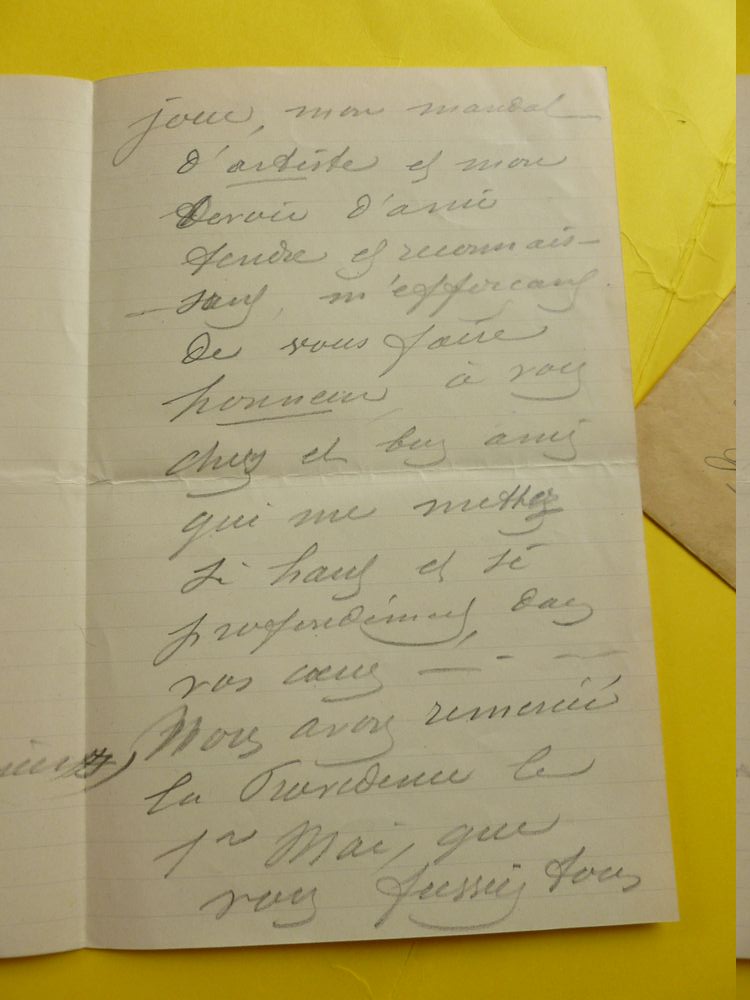 jour, mon mandat
d'artiste et mon
Devoir d'ami
tendre et reconnais-
-sant, m'efforçant
de vous faire
honneur, à vous
chers et bons amis
qui me mettez
si haut et si
profondément, dans
vos cœurs — - —
Nous avons remercié
la Providence le
1er Mai, que
vous fussiez tous